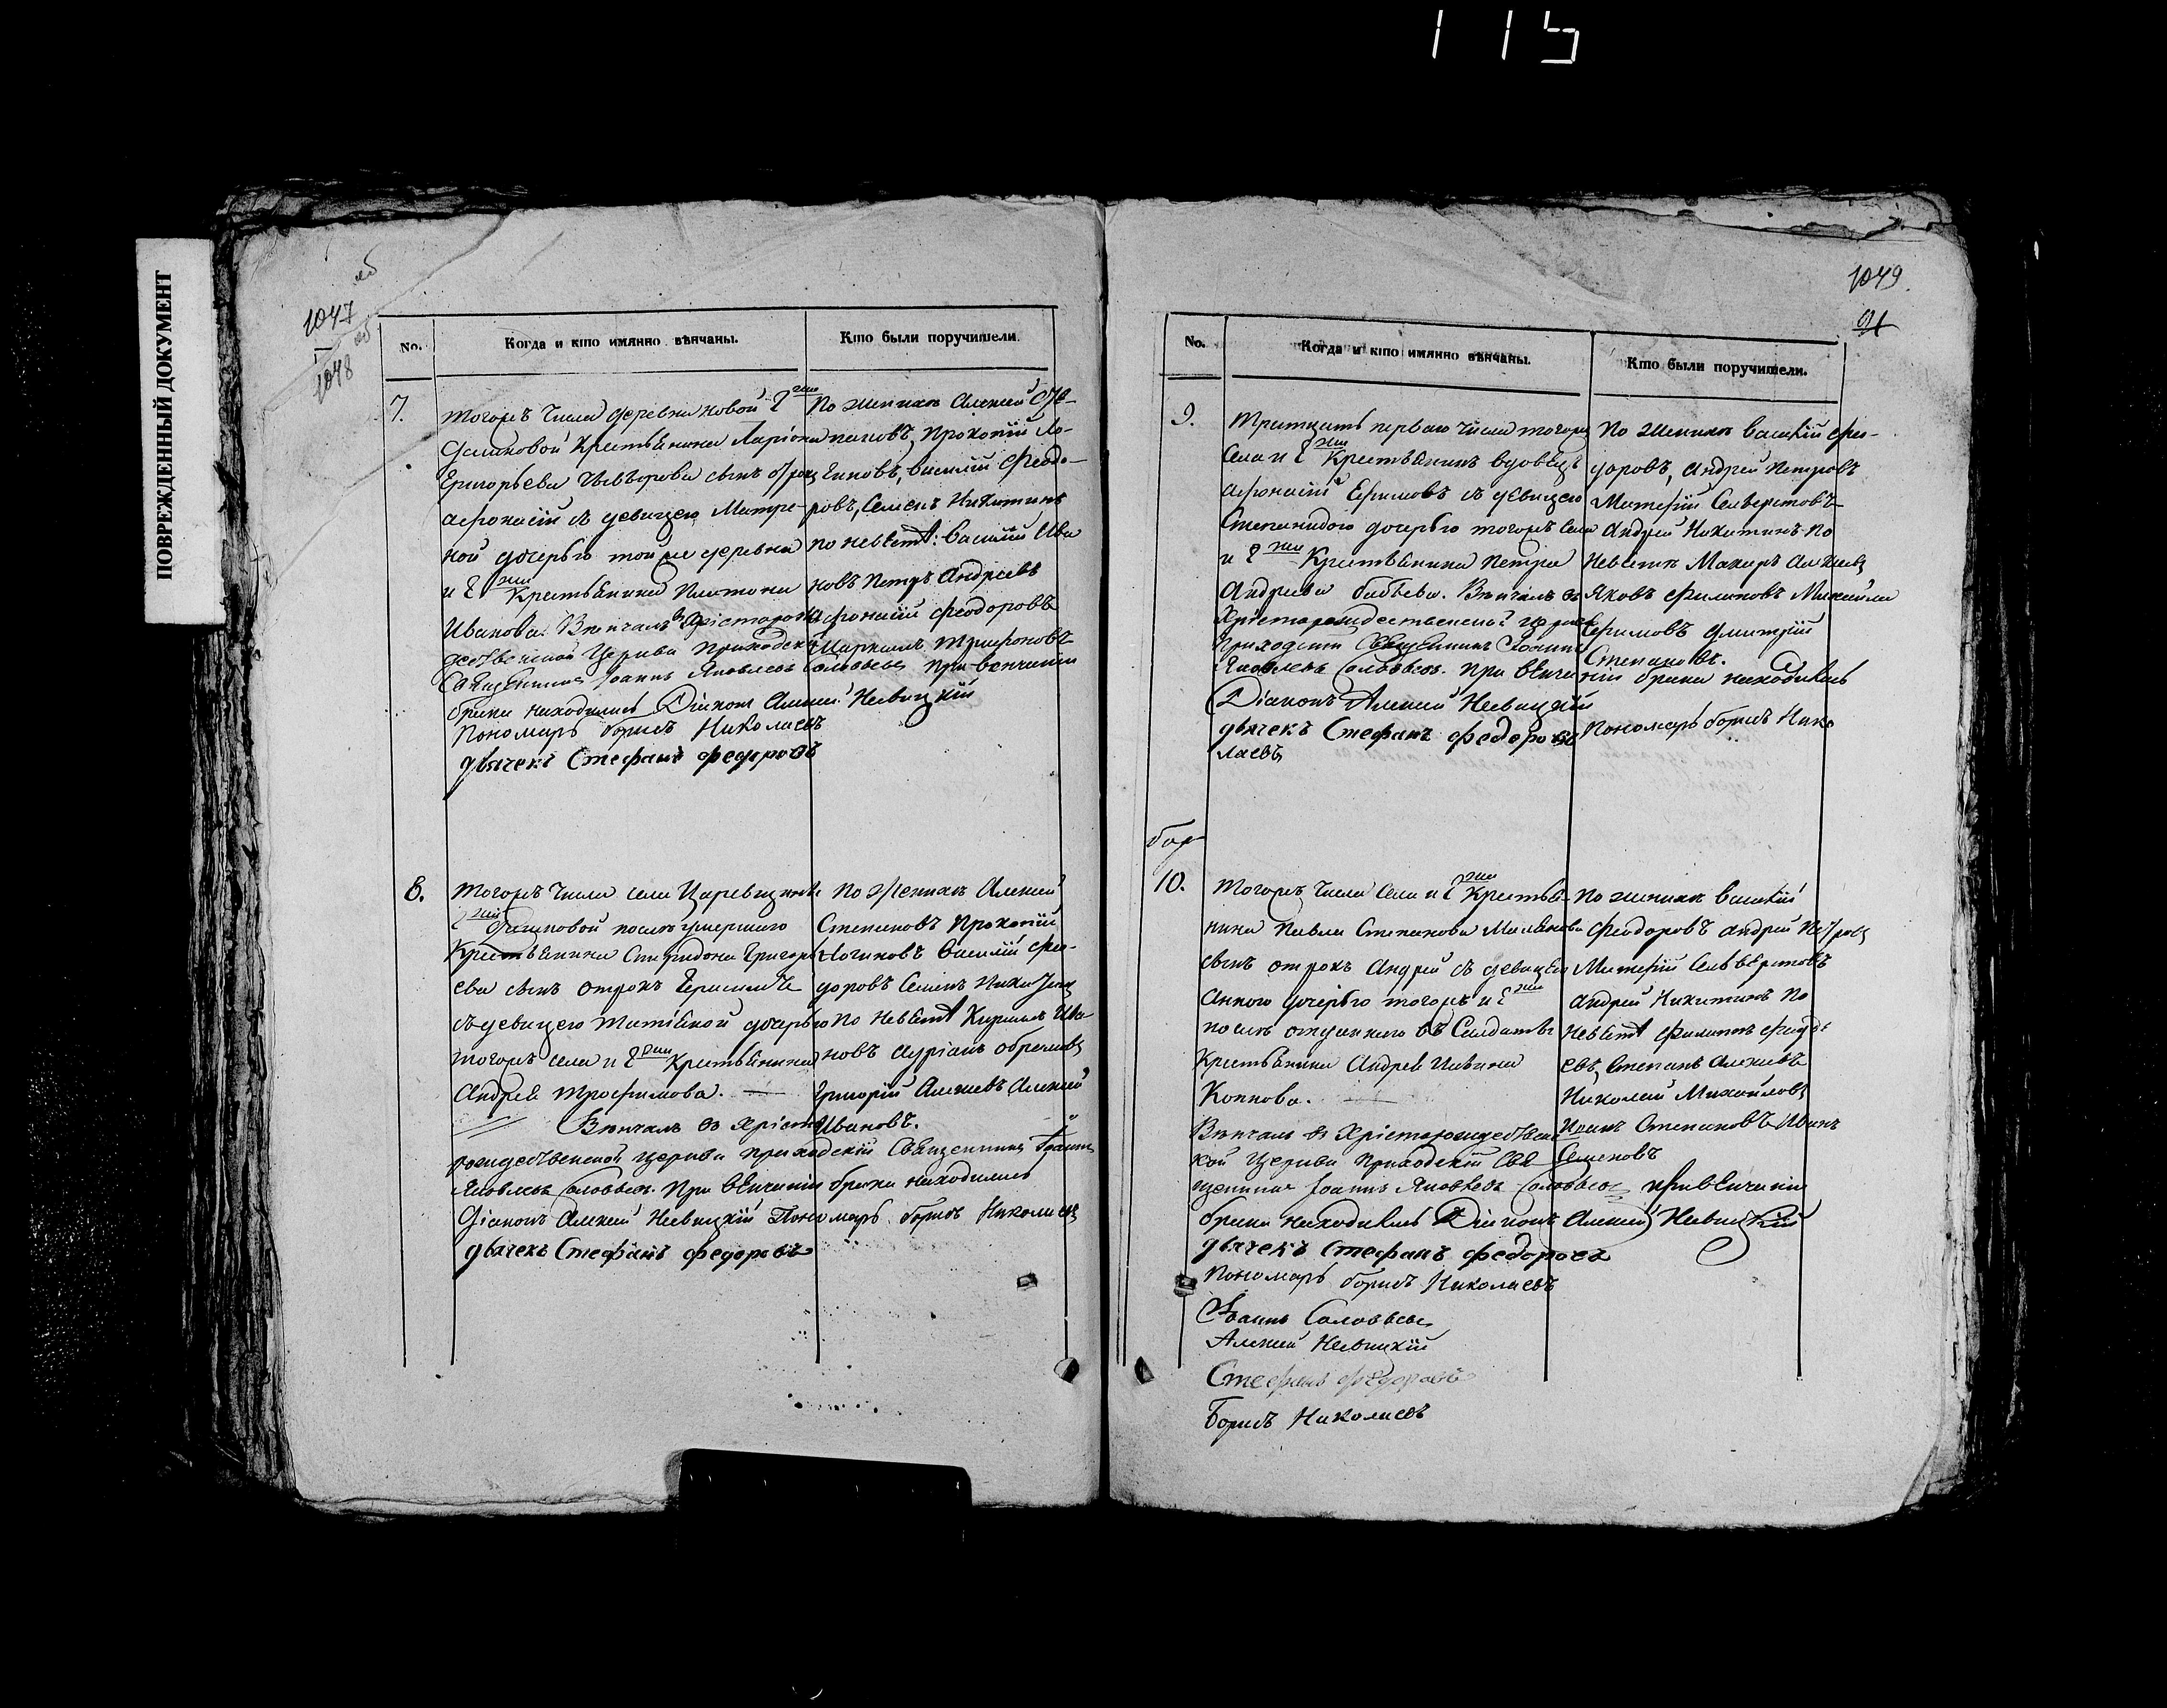 115
ПОВРЕЖДЕННЫЙ ДОКУМЕНТ
1047 об
1048 об
No.
Когда и кто имянно вѣнчаны.
Кто были поручишели.
7.
тогожъ Числа деревни новой Г жи
крестьянина Ларіона
Григорьева сынъ отрокъ
афонасій съ девицею Матре-
ной дочерью тойже деревни
и Г жи Крестьянина Платона
Иванова. Вѣнчалъ в Христорож
дественской Церкви Приходскій
Священникъ Іоаннъ Яковлевъ Соловьевъ при венчаніи
брака находились Діаконъ Алексей Невицкій
Пономарь борисъ Николаевъ
дьячекъ Стефанъ федоровъ
По женихѣ Алексей Сте-
пановъ, Прокопій Ло-
гиновъ, Василій Феодо-
ровъ, Семенъ Никитинъ
по невѣстѣ: Василій Ива
новъ Петръ Андреевъ
Афонасій Феодоровъ
Маркелъ Трифоновъ
8.
Тогожъ Числа села
Г жи послѣ умершаго
Крестьянина Спиридона Григорь
ева сынъ отрокъ Герасимъ
съ девицею Татіаной дочерью
тогожъ села и Г жи Крестьянина
Андрея Трофимова.
Вѣнчалъ в Христо
рождественской Церкви приходскій Священникъ Іоаннъ
Яковлевъ Соловьевъ. При вѣнчаніи брака находились
Діаконъ Алексей Невицкій Пономарь борисъ Николаевъ
дьячекъ Стефанъ федоровъ
По Женихѣ Алексей
Степановъ Прокопій
Логиновъ Василій Фео-
доровъ Семенъ Никитинъ
По Невѣстѣ Кирилъ Ива
новъ
Григорій Алексевъ Алексей
Ивановъ.
1049.
91
No.
Когда и кто имянно вѣнчаны.
Кто были поручишели.
9.
Тритцать перваго числа тогожъ
Села и Г жи Крестьянинъ вдовецъ
афонасій Ефимовъ съ девицею
Степанидою дочерью тогожъ села
и Г жи Крестьянина Петра
Андреева Вѣнчалъ въ
Христорождественской церкви
приходскій Священникъ Іоаннъ
Яковлевъ Соловьевъ. При вѣнчаніи брака находились
Діаконъ Алексей Невицкій
дьячекъ Стефанъ федоровъ Пономарь борисъ Нико
лаевъ
По женихѣ Василій Фео-
доровъ, Андрей Петровъ
Матефій Селверстовъ
Андрей Никитинъ По
Невѣстѣ Макаръ Алексеевъ
Яковъ Филиповъ Михайла
Ефимовъ Дмитрій
Степановъ.
10.
Тогожъ Числа Села и Г жи Крестья-
нина Павла Степанова
сынъ отрокъ Андрей съ девицею
Анною дочерью тогожъ и Г жи
послѣ отданнаго въ Салдаты
Крестьянина Андрея
Копнова.
Вѣнчалъ въ Христорождественс
кой Церкви Приходскій Свя
щенникъ Іоаннъ Яковлевъ Соловьевъ привѣнчаніи
брака находились Діаконъ Алексей Невицкій
дьячекъ Стефанъ федоровъ
Пономарь борисъ Николаевъ
Іоаннъ Соловьевъ
Алексей Невицкій
Стефанъ федоровъ
Борисъ Николаевъ
По женихѣ Василій
Феодоровъ Андрей Петровъ
Матефій Селверстовъ
Андрей Никитинъ По
Невѣстѣ Филипъ
Степанъ Алексевъ
Николай Михайловъ
Иванъ Степановъ Иванъ
Семеновъ